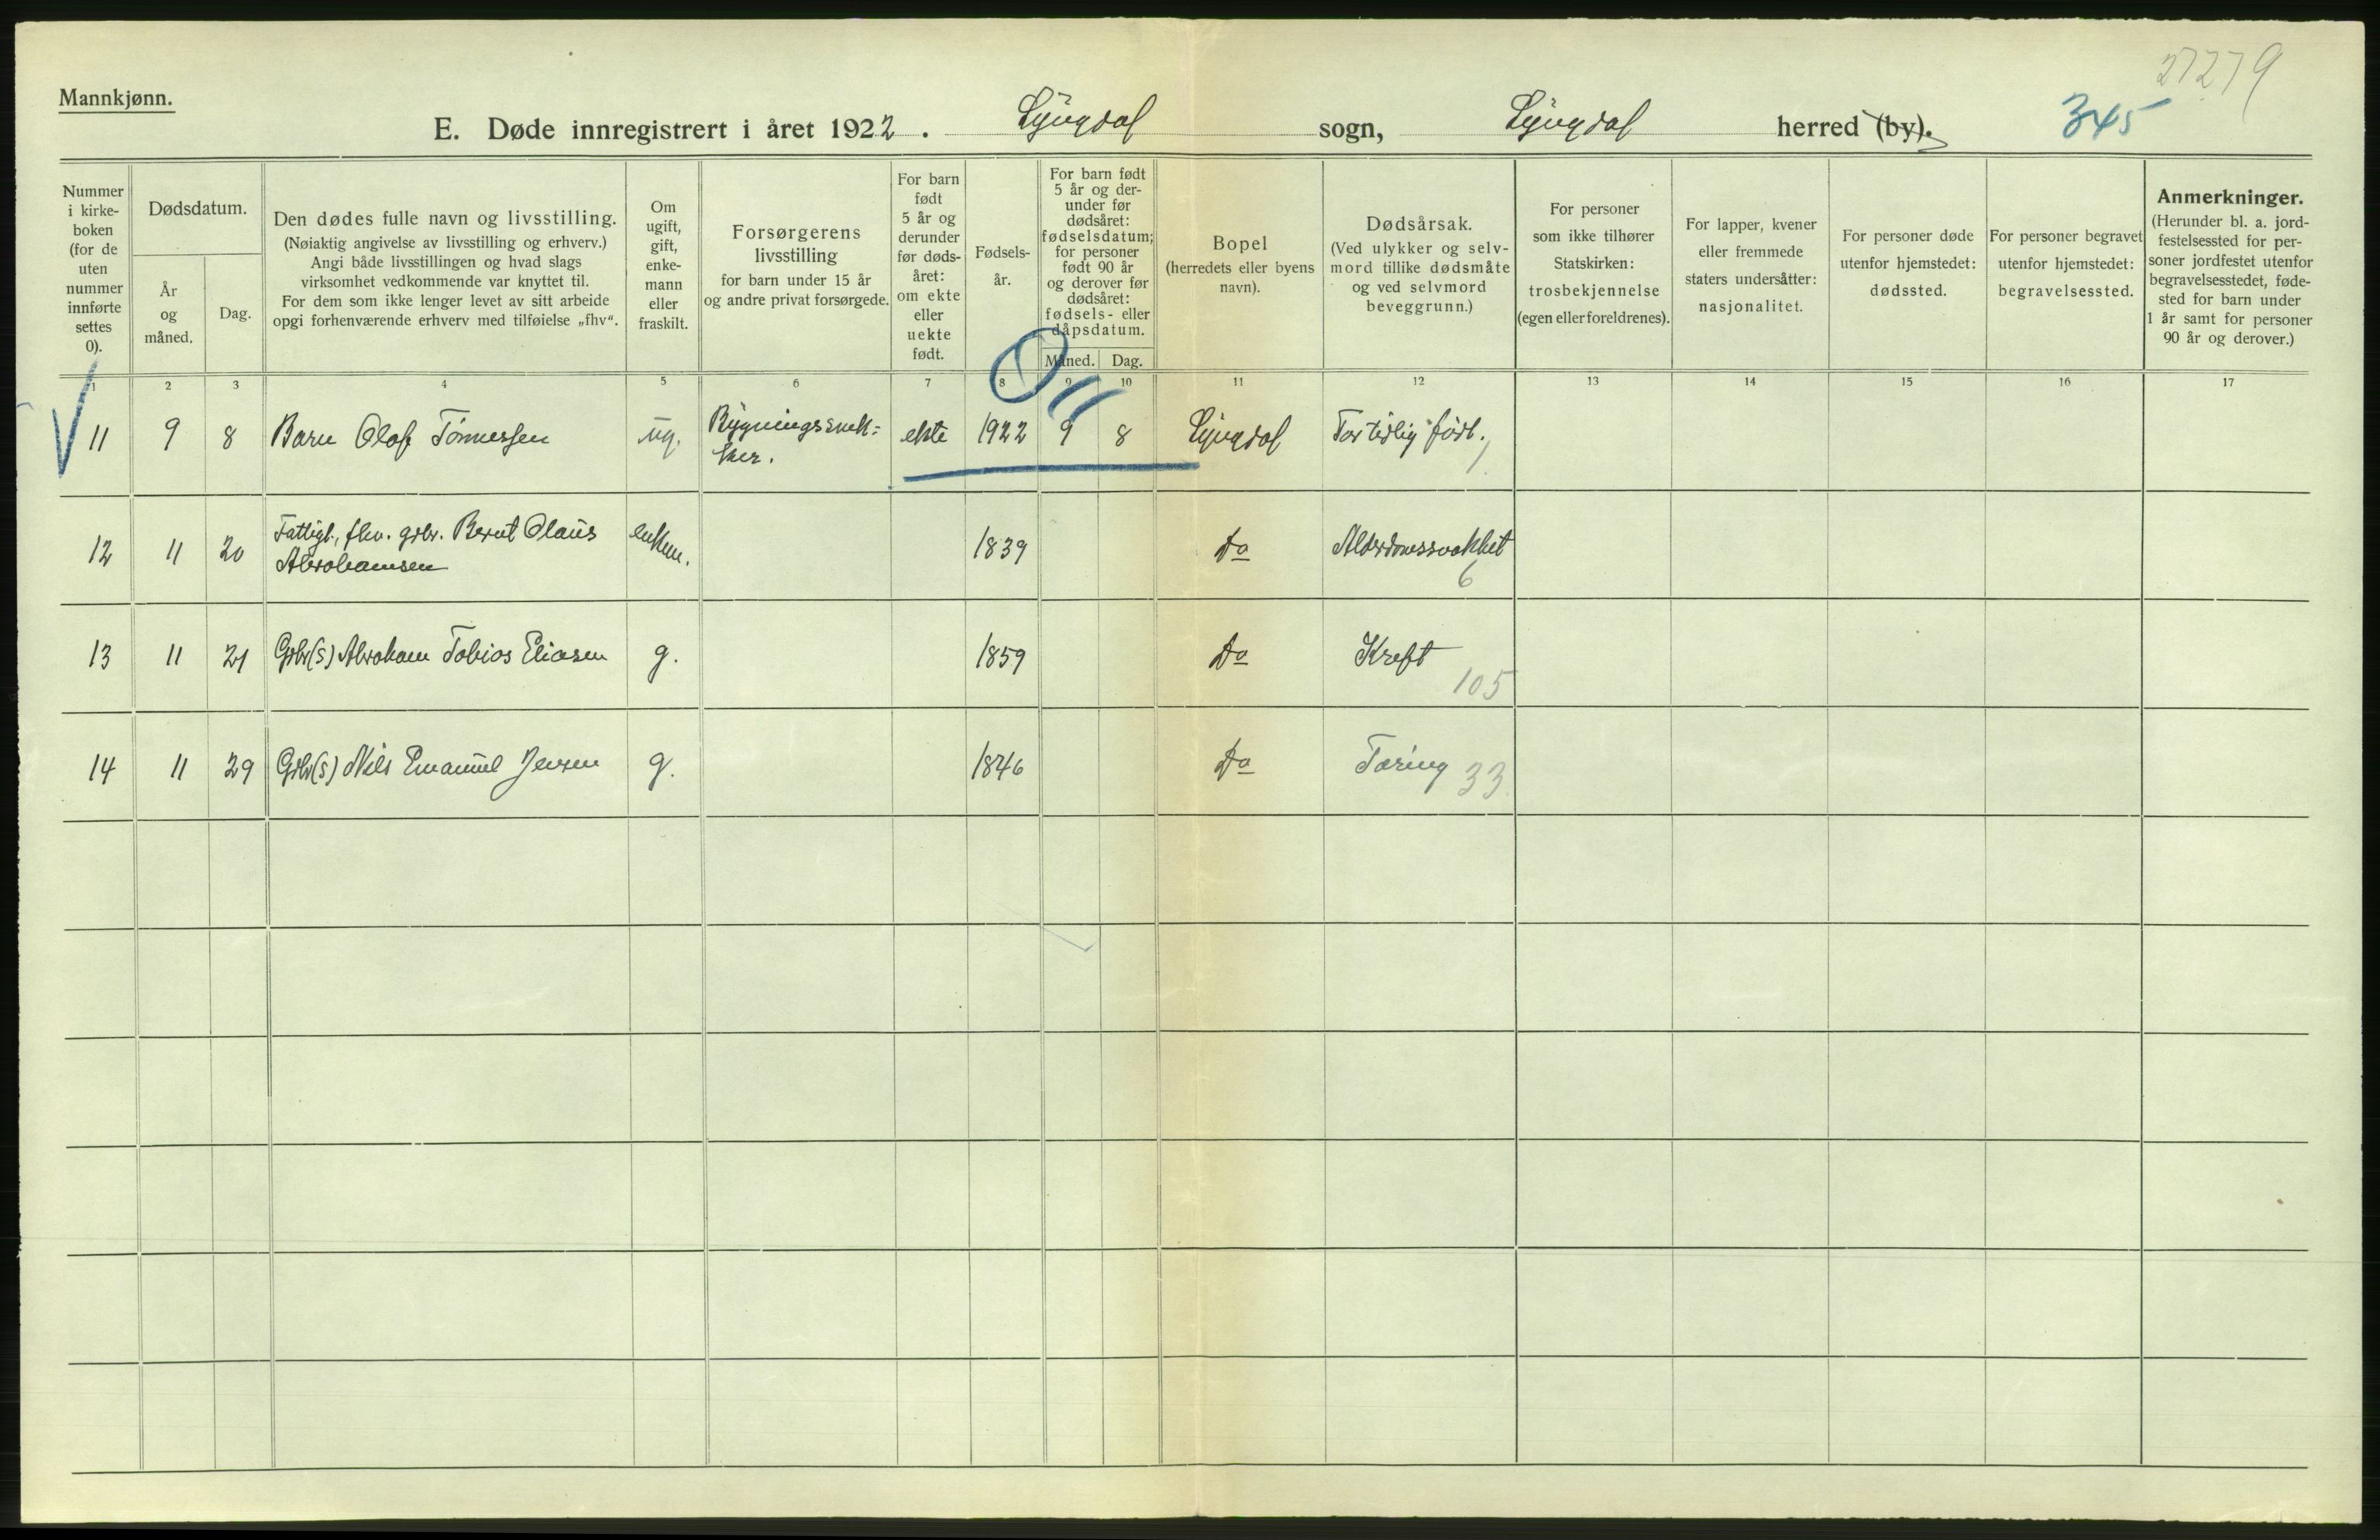 27279
Mannkjønn.
E. Døde innregistrert i året 1922. Lyngdal sogn, Lyngdal herred (by). 345
Nummer
i kirke-
boken
(for de
uten
nummer
innførte
settes
0).
Dødsdatum.
År
og
måned.
Dag.
Den dødes fulle navn og livsstilling.
(Nøiaktig angivelse av livsstilling og erhverv.)
Angi både livsstillingen og hvad slags
virksomhet vedkommende var knyttet til.
For dem som ikke lenger levet av sitt arbeide
opgi forhenværende erhverv med tilføielse „fhv“.
Om
ugift,
gift,
enke-
mann
eller
fraskilt.
Forsørgerens
livsstilling
for barn under 15 år
og andre privat forsørgede.
For barn
født
5 år og
derunder
før døds-
året:
om ekte
eller
uekte
født.
Fødsels-
år.
For barn født
5 år og der-
under før
dødsåret:
fødselsdatum;
for personer
født 90 år
og derover før
dødsåret:
fødsels- eller
dåpsdatum.
Måned. Dag.
Bopel
(herredets eller byens
navn).
Dødsårsak.
(Ved ulykker og selv-
mord tillike dødsmåte
og ved selvmord
beveggrunn.)
For personer
som ikke tilhører
Statskirken:
trosbekjennelse
(egen eller foreldrenes).
For lapper, kvener
eller fremmede
staters undersåtter:
nasjonalitet.
For personer døde
utenfor hjemstedet:
dødssted.
For personer begravet
utenfor hjemstedet:
begravelsessted.
Anmerkninger.
(Herunder bl. a. jord-
festelsessted for per-
soner jordfestet utenfor
begravelsesstedet, føde-
sted for barn under
1 år samt for personer
90 år og derover.)
1 2 3 4 5 6 7 8 9 10 11 12 13 14 15 16 17
11 9 8 Barn Olaf Tönnessen ug. Bygningssnek=
ker. ekte 1922 9 8 Lyngdal For tidlig født.
12 11 20 Fattigl., fhv. grbr. Bernt Olaus
Abrahamsen enkem. 1839 Do Alderdomssvakhet
6
13 11 21 Grbr(S) Abraham Tobias Eliasen g. 1859 Do Kreft
105
14 11 29 Grbr(S) Nils Emanuel Jensen g. 1846 Do Tæring 33